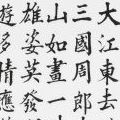 大江東去
三國周郎
山如畫一
雄姿英發
遊多情應